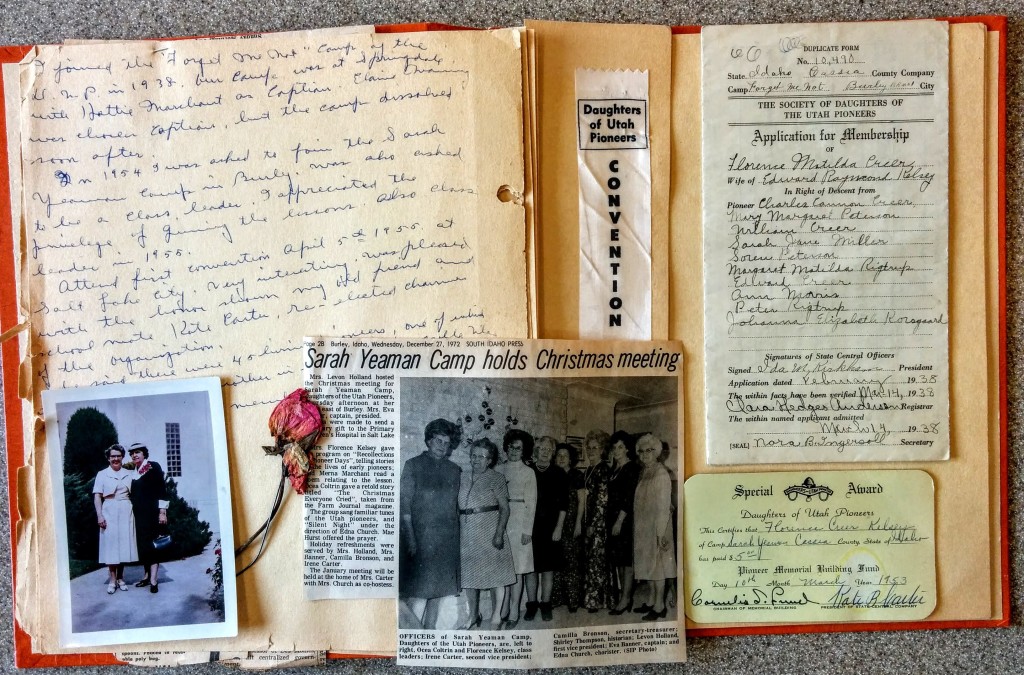 I joined the "Forget Me Not" Camp of the
D. U. P. in 1938. Our Camp was at Springdale,
with Hattie Marchant as Captian.
was chosen Captian, but the camp dissolved
soon after.
In 1954 I was asked to join the Sarah
Yeaman Camp in Burley. was also asked
to be a class leader, I appreciated the
privelege of giving the lessons. Also class
leader in 1955.
Attend first convention April 5th 1955, at
Salt Lake City. Very interesting, was pleased
with the honor shown my old friend and
school mate Kate Carter, re-elected
the organization.
Daughters
of Utah
Pioneers
CONVENTION
DUPLICATE FORM
No. 10,490
State Idaho Cassia County Company
Camp Forget me not Burley City
THE SOCIETY OF DAUGHTERS OF
THE UTAH PIONEERS
Application for Membership
OF
Florence Matilda Creer
Wife of Edward Raymond Kelsey
In Right of Descent from
Pioneer Charles Cannon Creer
Mary Margaret Peterson
William Creer
Sarah Jane Miller
Soren Peterson
Margaret Matilda Rigtrup
Edward Creer
Ann Morris
Peter Rigtrup
Johanna Elizabeth
Signatures of State Central Officers
Signed President
Application dated February 1938
The within facts have been verified Mar 14, 1938
Clara Hedges Registrar
The within named applicant admitted
1938
[SEAL] Nora B. Ingersoll Secretary
Page 2B Burley, Idaho, Wednesday, December 27, 1972 SOUTH IDAHO PRESS
Sarah Yeaman Camp holds Christmas meeting
Mrs. Levon Holland hosted
the Christmas meeting for
Sarah Yeaman Camp,
Daughters of the Utah Pioneers,
afternoon at her
east of Burley. Mrs. Eva
captain, presided.
were made to send a
gift to the Primary
Hospital in Salt Lake
Mrs. Florence Kelsey gave
program on "Recollections
Days", telling stories
the lives of early pioneers;
Merna Marchant read a
poem relating to the lesson.
Ocea Coltrin gave a retold story
"The Christmas
Everyone Cried", taken from
the Farm Journal magazine.
The group sang familiar tunes
of the Utah pioneers, and
"Silent Night" under the
direction of Edna Church. Mae
Hurst offered the prayer.
Holiday refreshments were
served by Mrs. Holland, Mrs.
Banner, Camilla Bronson, and
Irene Carter.
The January meeting will be
held at the home of Mrs. Carter
with Mrs. Church as co-hostess.
OFFICERS of Sarah Yeaman Camp,
Daughters of the Utah Pioneers, are, left to
right, Ocea Coltrin and Florence Kelsey, class
leaders; Irene Carter, second vice president;
Camilla Bronson, secretary-treasurer;
Shirley Thompson, historian; Levon Holland,
first vice president; Eva Banner, captain; and
Edna Church, chorister. (SIP Photo)
Special Award
Daughters of Utah Pioneers
This Certifies that Florence Creer Kelsey
of Camp Sarah Yeaman Cassia County, State of Idaho
has paid $ 5.00
Pioneer Memorial Building Fund
Day 10th Month March Year 1953
Kate B. Carter
CHAIRMAN OF MEMORIAL BUILDING
PRESIDENT OF STATE CENTRAL COMPANY